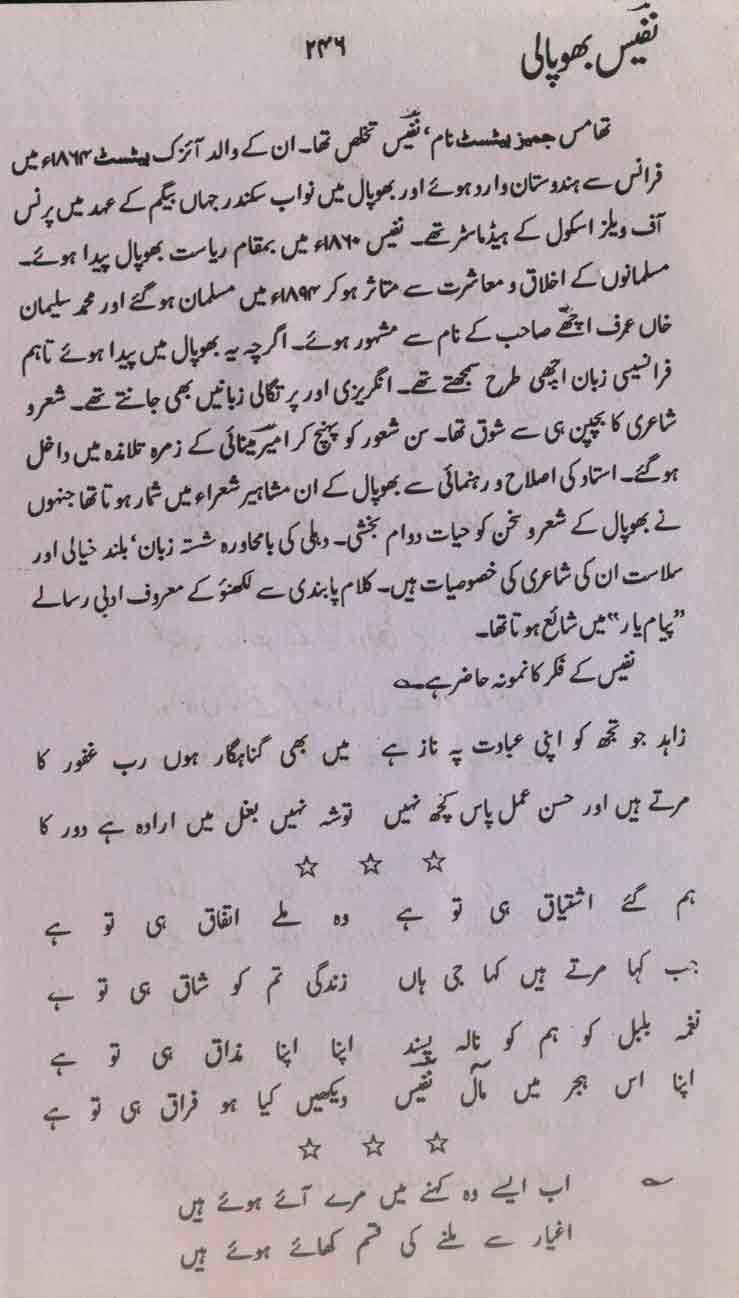 نفیسؔ بھوپالی
۲۴۶
تھامس جمیز بیٹسٹ نام، نفیسؔ تخلص تھا۔ ان کے والد آئزک بیٹسٹ ۱۸۶۴ء میں
فرانس سے ہندوستان وارد ہوئے اور بھوپال میں نواب سکندر جہاں بیگم کے عہد میں پرنس
آف ویلز اسکول کے ہیڈماسٹر تھے۔ نفیس ۱۸۶۰ء میں بمقام ریاست بھوپال پیدا ہوئے۔
مسلمانوں کے اخلاق و معاشرت سے متاثر ہوکر ۱۸۹۴ء میں مسلمان ہوگئے اور محمد سلیمان
خاں عرف اچھّے صاحب کے نام سے مشہور ہوئے۔ اگرچہ یہ بھوپال میں پیدا ہوئے تاہم
فرانسیسی زبان اچھی طرح سمجھتے تھے۔ انگریزی اور پرتگالی زبانیں بھی جانتے تھے۔ شعرو
شاعری کا بچپن ہی سے شوق تھا۔ سن شعور کو پہنچ کر امیرؔ مینائی کے زمرہ تلامذہ میں داخل
ہوگئے۔ استاد کی اصلاح و رہنمائی سے بھوپال کے ان مشاہیر شعراء میں شمار ہوتا تھا جنہوں
نے بھوپال کے شعرو سخن کو حیات دوام بخشی۔ دہلی کی بامحاورہ شستہ زبان، بلند خیالی اور
سلاست ان کی شاعری کی خصوصیات ہیں۔ کلام پابندی سے لکھنؤ کے معروف ادبی رسالے
”پیام یار“ میں شائع ہوتا تھا۔
نفیس کے فکر کا نمونہ حاضر ہے۔؎
زاہد جو تجھ کو اپنی عبادت پہ ناز ہے میں بھی گناہگار ہوں رب غفور کا
مرتے ہیں اور حسن عمل پاس کچھ نہیں توشہ نہیں بغل میں ارادہ ہے دور کا
☆ ☆ ☆
ہم گئے اشتیاق ہی تو ہے وہ ملے اتفاق ہی تو ہے
جب کہا مرتے ہیں کہا جی ہاں زندگی تم کو شاق ہی تو ہے
نغمہ بلبل کو ہم کو نالہ پسند اپنا اپنا مذاق ہی تو ہے
اپنا اس ہجر میں مآل نفیسؔ دیکھیں کیا ہو فراق ہی تو ہے
☆ ☆ ☆
؎ اب ایسے وہ کہنے میں مرے آئے ہوئے ہیں
اغیار سے ملنے کی قسم کھائے ہوئے ہیں